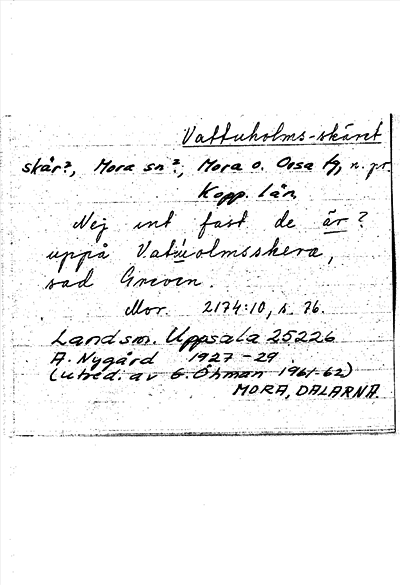 Vattuholms-skäret
skär?, Mora sn?, Mora o. Orsa tg, n. pr.
Kopp. län
Nej int fast de är?
uppå Vatuolmsskera,
sad Greven.
Mor. 2174:10, s. 76.
Landsm. Uppsala 25226
A. Nygård 1927-29.
(utred. av G. Öhman 1961-62)
MORA, DALARNA.